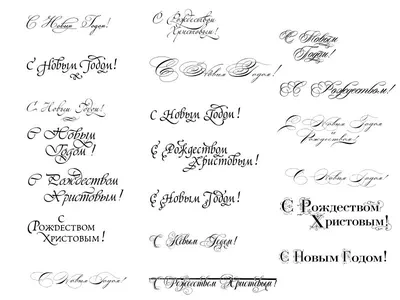 С Новым Годом!
С Новым Годом!
С Новым Годом!
С Новым
Годом!
С Рождеством
Христовым!
С
Рождеством
Христовым!
С Новым Годом!
С Рождеством
Христовым!
С Новым Годом!
С Новым Годом!
С Рождеством
Христовым!
С Новым Годом!
С Новым Годом!
С Рождеством Христовым!
С Новым
Годом!
С Рождеством!
С Новым Годом
и Рождеством!
С Новым Годом!
С Рождеством
Христовым!
С Новым Годом!